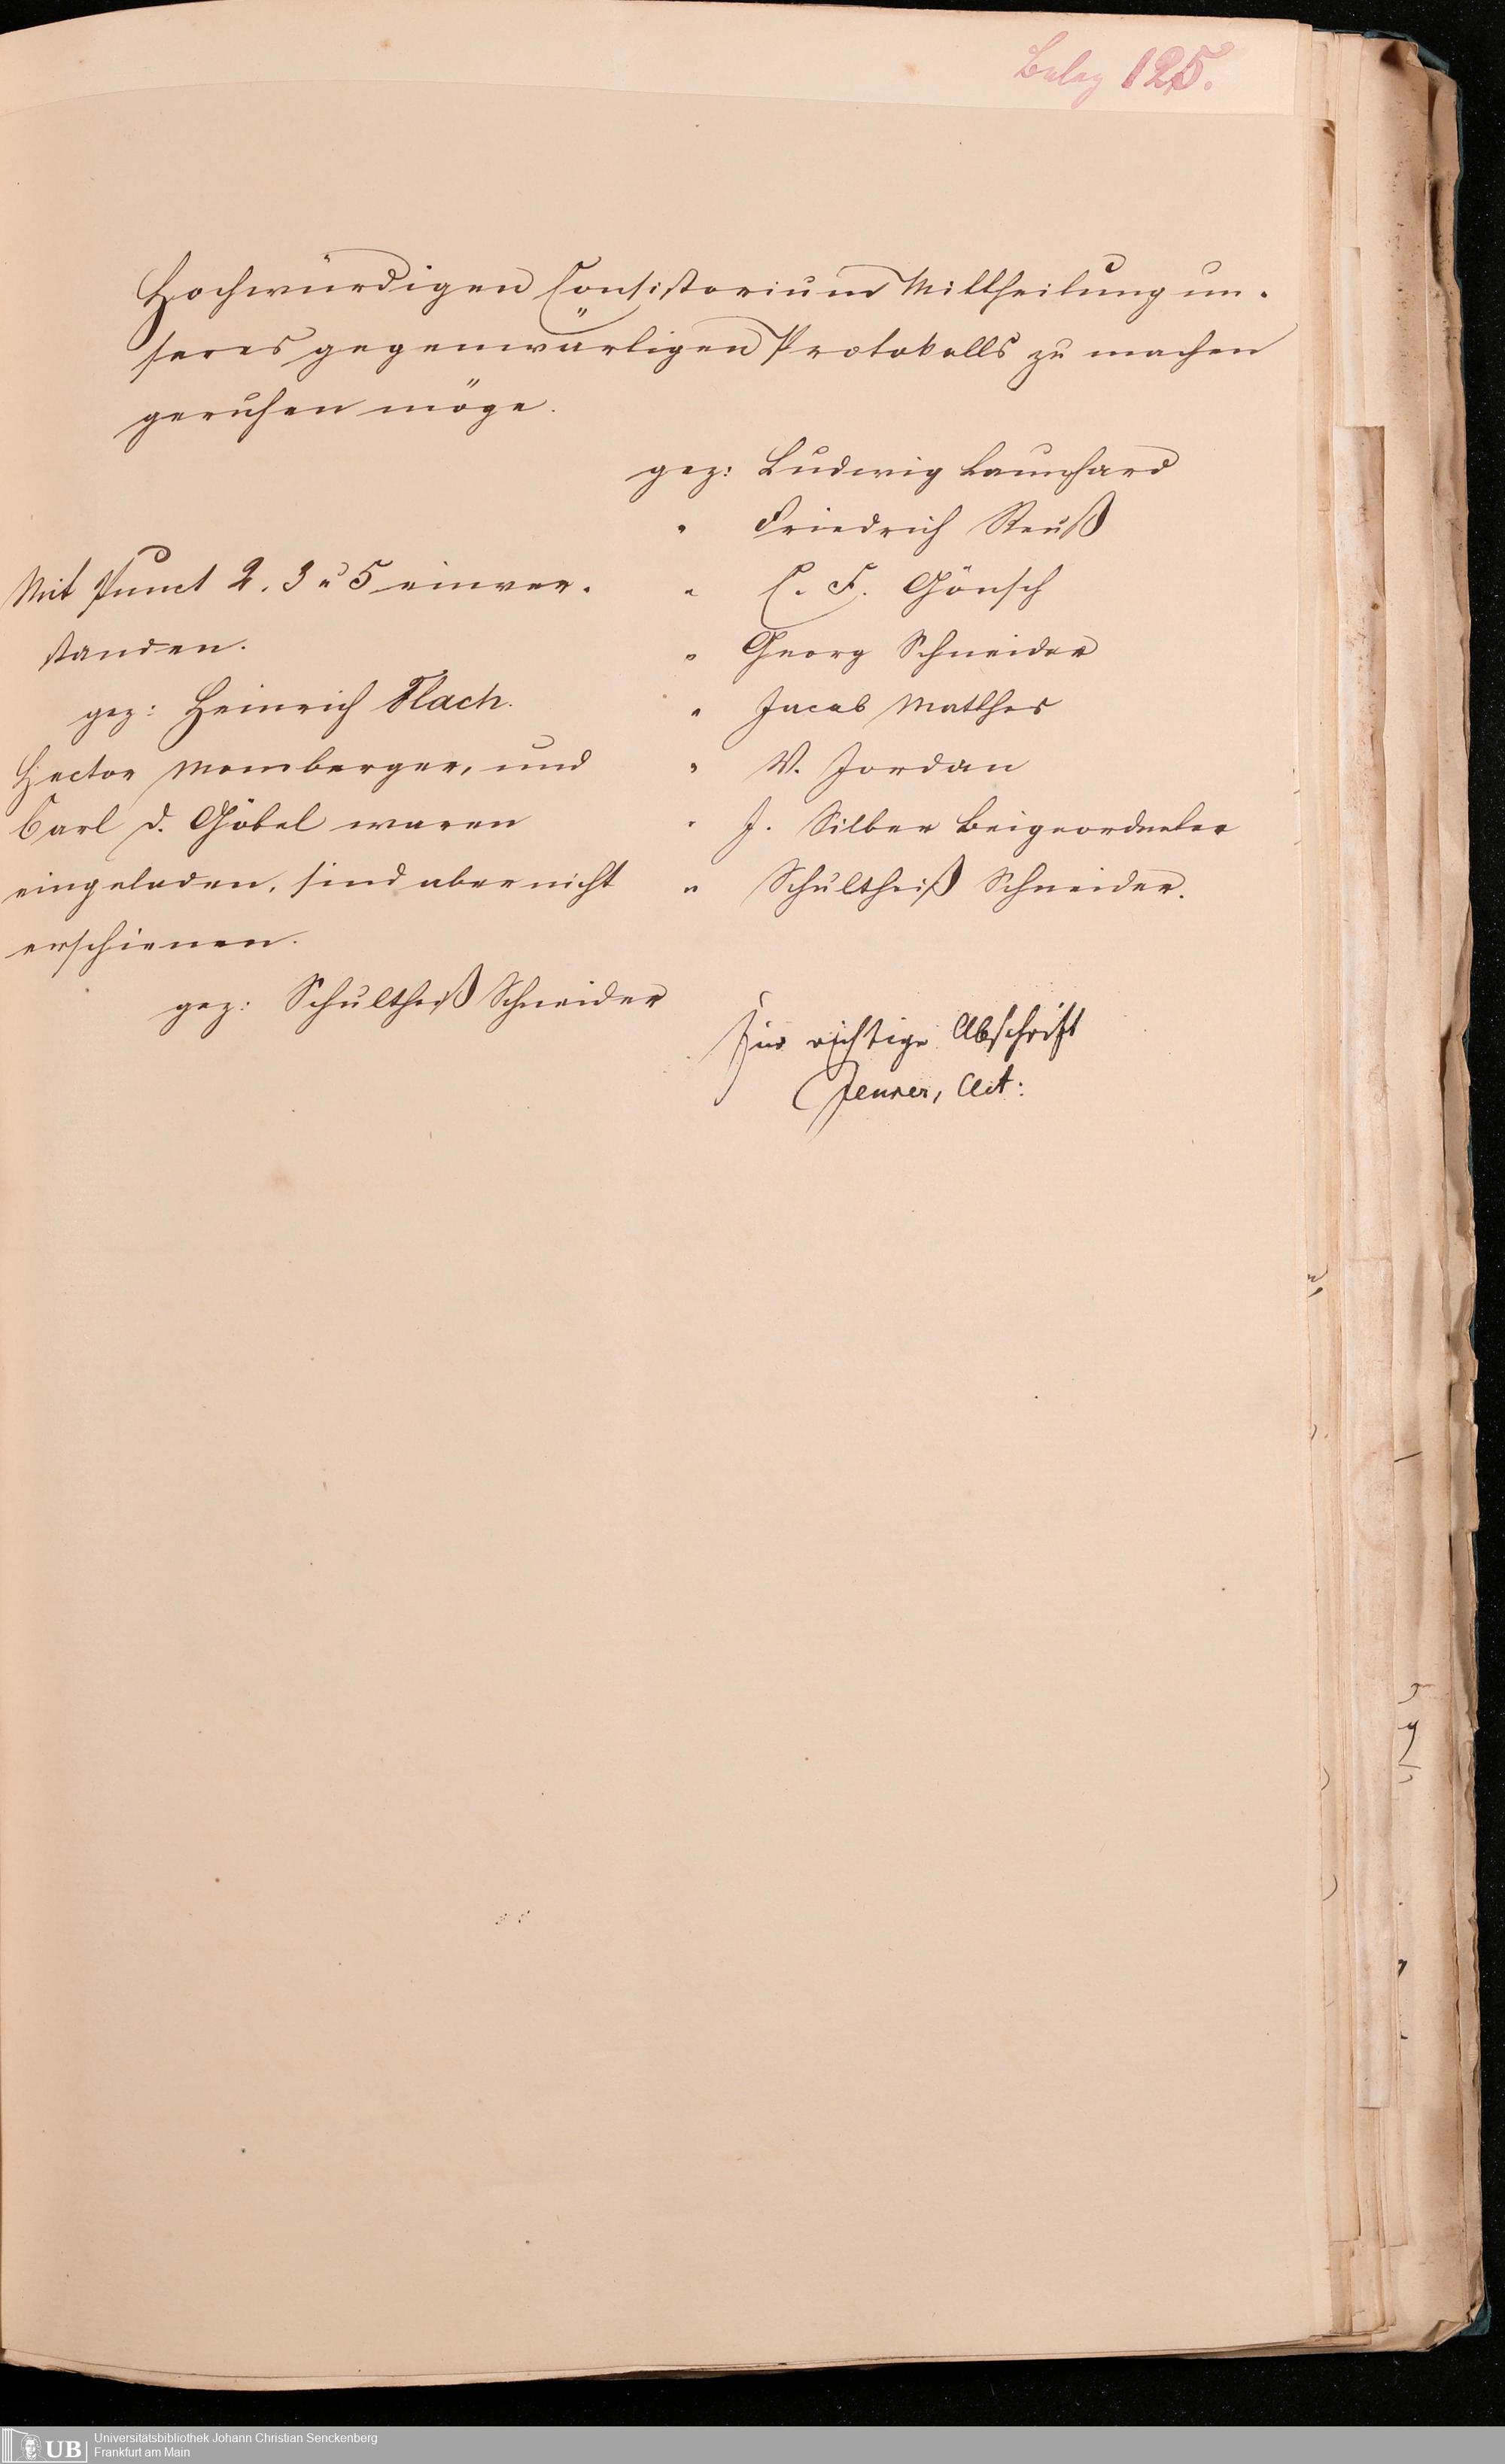 Belag 125.
Hochwürdigen Consistorium Mittheilung un-
seres gegenwärtigen Protokolls zu machen
geruhen möge.
gez: Ludwig Launhard
" Friedrich Reuß
" C. F. Gönsch
" Georg Schneider
" Jacob Matthes
" W. Jordan
" J. Silber Beigeordneter
" Schultheiß Schneider.
Mit Punct 2. 3 u 5 einver-
standen.
gez: Heinrich Flach.
Hector Momberger, und
Carl D. Göbel waren
eingeladen, sind aber nicht
erschienen.
gez: Schultheiß Schneider
Für richtige Abschrift
Act:
UB
Universitätsbibliothek Johann Christian Senckenberg
Frankfurt am Main